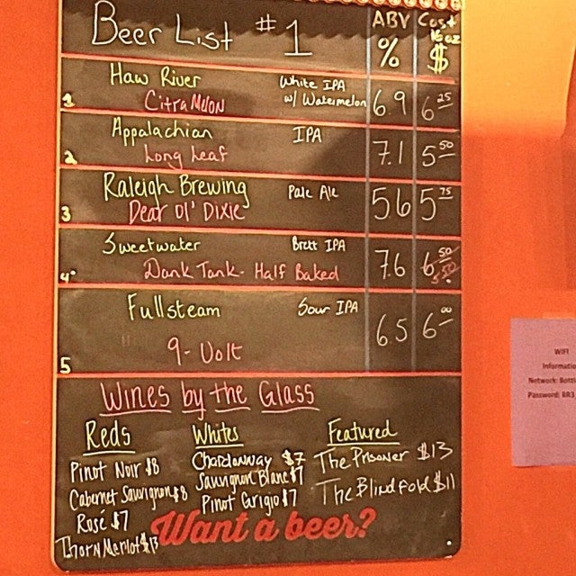 Beer List #1 ABV % Cost 16oz $
Haw River White IPA
1 Citra Melon w/ Watermelon 6.9 6 25
Appalachian IPA
2 Long Leaf 7.1 5 50
Raleigh Brewing Pale Ale
3 Dear Ol' Dixie 5 6 5 75
Sweetwater Brett IPA
4 Dank Tank - Half Baked 7.6 6 50
Fullsteam Sour IPA
5 9-Volt 6 5 6 00
Wines by the Glass
Reds Whites Featured
Pinot Noir $8 Chardonnay $7 The Prisoner $13
Cabernet Sauvignon $8 Sauvignon Blanc $7 The Blindfold $11
Rosé $7 Pinot Grigio $7
Thorn Merlot $13
Want a beer?
WIFI
Informatio
Network: Bottl
Password: BR3